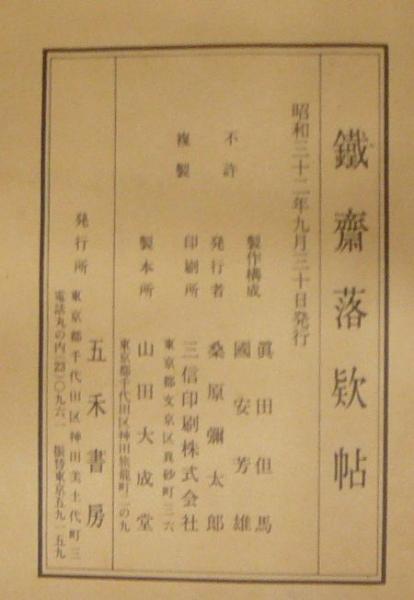 鐵齋落欵帖
昭和三十二年九月三十日発行
不許
複製
製作構成 眞田但馬
國安芳雄
発行者 桑原彌太郎
印刷所 三信印刷株式会社
東京都文京区真砂町三六
製本所 山田大成堂
東京都千代田区神田旅籠町二の九
発行所 五禾書房
東京都千代田区神田美土代町三
電話丸の内(23)〇九六一 振替東京五九一五九